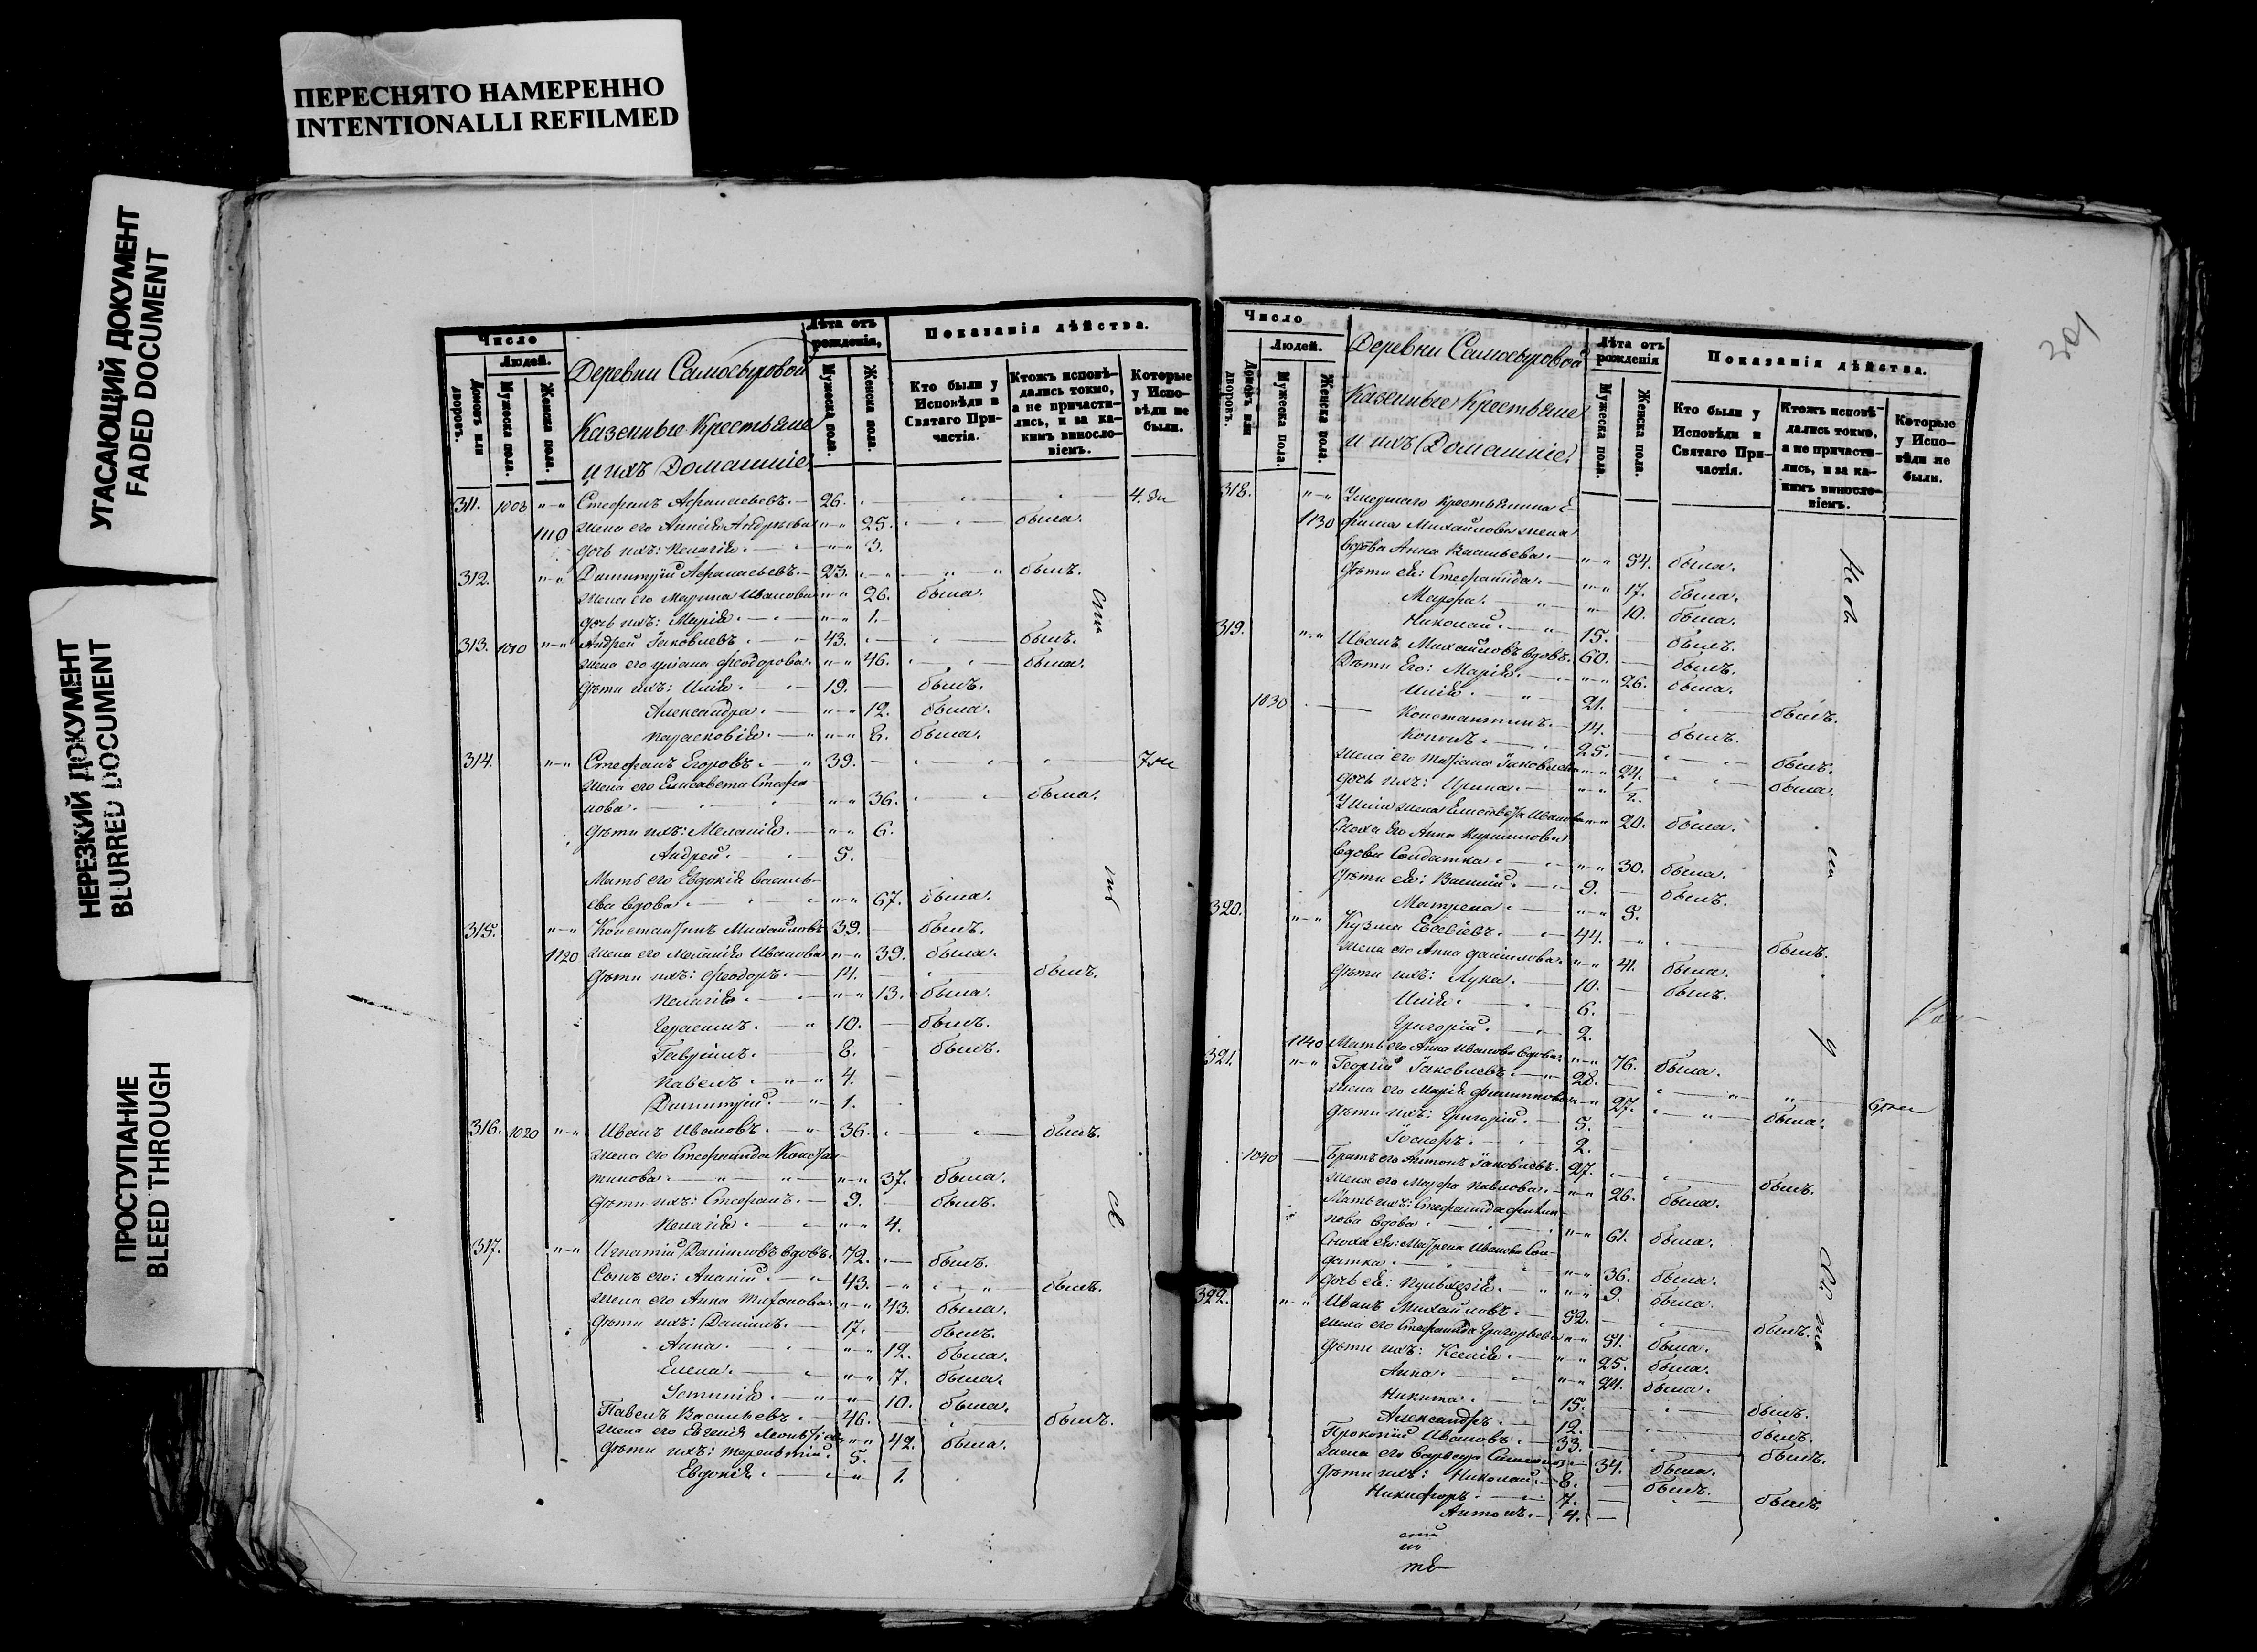 ПЕРЕСНЯТО НАМЕРЕННО
INTENTIONALLI REFILMED
УГАСАЮЩИЙ ДОКУМЕНТ
FADED DOCUMENT
НЕРЕЗКИЙ ДОКУМЕНТ
BLURRED DOCUMENT
ПРОСТУПАНИЕ
BLEED THROUGH
Число
Людей.
Домовъ или дворовъ.
Мужеска пола.
Женска пола.
Деревни Самосыровой
Казенные Крестьяне
и ихъ Домашніе.
Лѣта отъ рожденія,
Мужеска пола.
Женска пола.
Показанія дѣйства.
Кто были у Исповѣди и Святаго Причастія.
Ктожъ исповѣдались токмо, а не причастились, и за какимъ винословіемъ.
Которые у Исповѣди не были.
311. 1008 Стефанъ Афанасьевъ. 26.
1110 жена его 25. была.
дочь ихъ: Пелагія. 3.
312. Димитрій Афанасьевъ. 23. былъ.
жена его Марина Иванова 26. была.
дочь ихъ: Марія. 1.
313. 1010 Андрей Іаковлевъ 43. былъ.
жена его Феодорова. 46. была.
дѣти ихъ: Илія. 19. былъ.
Александра. 12. была.
Парасковія. 8. была.
314. Стефанъ Егоровъ. 39.
жена его Елисавета Стефа
нова. 36. была.
дѣти ихъ: Меланія. 6.
Андрей. 5.
Мать его Евдокія Василь-
ева вдова. 67. была.
315. Константинъ Михайловъ 39. былъ.
1120 жена его Меланія Иванова 39. была.
дѣти ихъ: Феодоръ. 14. былъ.
Пелагія. 13. была.
Герасимъ. 10. былъ.
Гавріилъ. 8. былъ.
Павелъ. 4.
Димитрій. 1.
316. 1020 Иванъ Ивановъ. 36. былъ.
жена его Стефанида Констан
тинова. 37. была.
дѣти ихъ: Стефанъ. 9. былъ.
Пелагія. 4.
317. Игнатій Даниловъ вдовъ. 72. былъ.
Сынъ его: Ананій. 43. былъ.
жена его Анна Тихонова. 43. была.
дѣти ихъ: Даніилъ. 17. былъ.
Анна. 12. была.
Елена. 7. была.
10. была.
Павелъ Васильевъ. 46. былъ.
жена его Евгенія 42. была.
дѣти ихъ: Терентій. 5.
Евдокія. 1.
301
Число
Людей.
Домовъ или дворовъ.
Мужеска пола.
Женска пола.
Деревни Самосыровой
Казенные Крестьяне
и ихъ Домашніе.
Лѣта отъ рожденія
Мужеска пола.
Женска пола.
Показанія дѣйства.
Кто были у Исповѣди и Святаго Причастія.
Ктожъ исповѣдались токмо, а не причастились, и за какимъ винословіемъ.
Которые у Исповѣди не были.
318. Умершаго крестьянина Е-
1130 фима Михайлова жена
вдова Анна Васильева. 54. была.
дѣти ея: Стефанида. 17. была.
Марфа. 10. была.
Николай. 15. былъ.
319. Иванъ Михайловъ вдовъ. 60. былъ.
Дѣти Его: Марія. 26. была.
1030 Илія. 21. былъ.
Константинъ. 14. былъ.
Кононъ. 25. былъ.
жена его Татіана Іаковлева 24. была.
дочь ихъ: Ирина. 1/2.
У Иліи жена Елисавета Иванова 20. была.
Сноха Его Анна Кириллова
вдова Солдатка. 30. была.
дѣти ея: Василій. 9. былъ.
Матрена. 5.
320. Кузма Евсевіевъ. 44. былъ.
жена его Анна Данилова. 41. была.
дѣти ихъ: Лука. 10. былъ.
Илія. 6.
Григорій. 2.
1140 Мать его Анна Иванова вдова. 76. была.
321. Георгій Іаковлевъ. 28.
жена его Марія Филиппова 27. была.
дѣти ихъ: Григорій. 5.
Іосифъ. 2.
1040 Братъ его Антонъ Іаковлевъ. 27. былъ.
жена его Марфа Павлова. 26. была.
Мать ихъ: Стефанида
вдова 61. была.
Сноха ея: Матрена Иванова Сол-
датка. 36. была.
дочь ея: Пульхерія. 9. была.
322. Иванъ Михайловъ. 52. былъ.
жена его Стефанида Григорьева 51. была.
дѣти ихъ: Ксенія. 25. была.
Анна. 24. была.
Никита. 15. былъ.
Александръ. 12. былъ.
Прокопій Ивановъ. 33. былъ.
жена его Варвара 34. была.
дѣти ихъ: Николай. 8. былъ.
Никифоръ. 7. былъ.
Антонъ. 4.